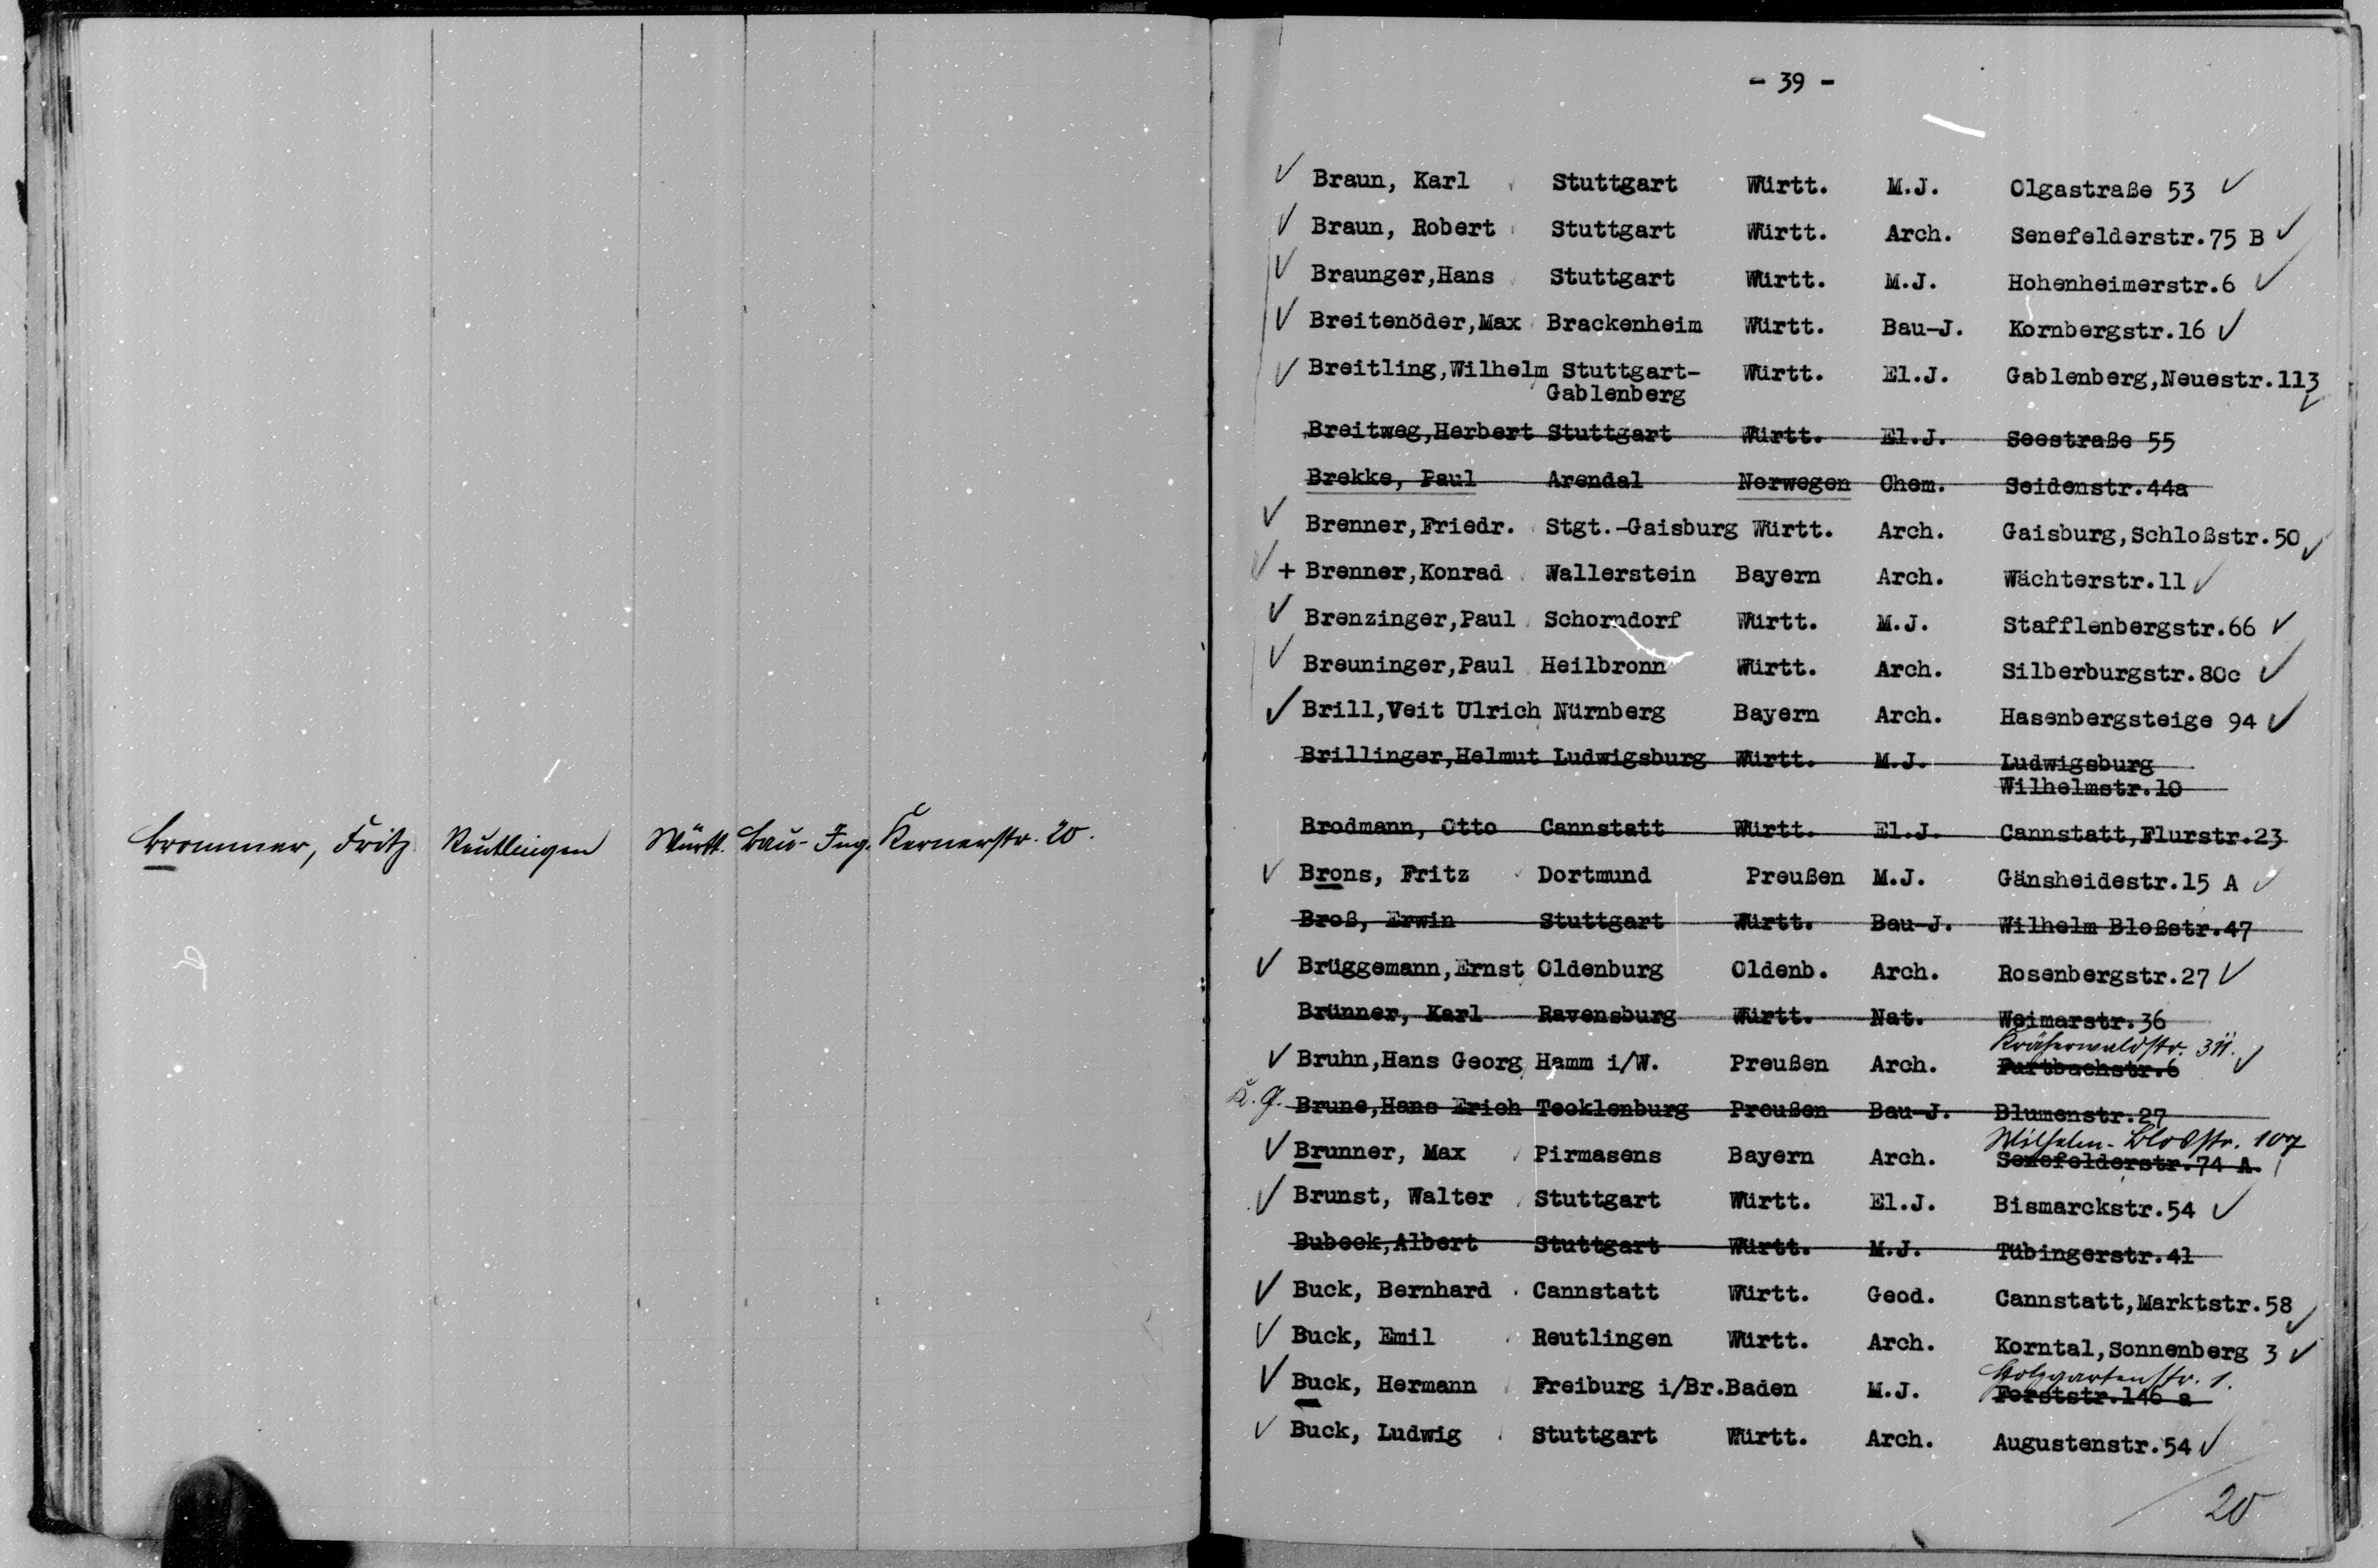 Brommer, Fritz Reutlingen Württ. Bau-Ing. Kernerstr. 20.
- 39 -
Braun, Karl Stuttgart Württ. M.J. Olgastraße 53
Braun, Robert Stuttgart Württ. Arch. Senefelderstr.75 B
Braunger,Hans Stuttgart Württ. M.J. Hohenheimerstr.6
Breitenöder,Max Brackenheim Württ. Bau-J. Kornbergstr.16
Breitling,Wilhelm Stuttgart- Württ. El.J. Gablenberg,Neuestr.113
Gablenberg
Breitweg,Herbert Stuttgart Württ. El.J. Seestraße 55
Brekke, Paul Arendal Norwegen Chem. Seidenstr.44a
Brenner,Friedr. Stgt.-Gaisburg Württ. Arch. Gaisburg,Schloßstr.50
+ Brenner,Konrad Wallerstein Bayern Arch. Wächterstr.11
Brenzinger,Paul Schorndorf Württ. M.J. Stafflenbergstr.66
Breuninger,Paul Heilbronn Württ. Arch. Silberburgstr.80c
Brill,Veit Ulrich Nürnberg Bayern Arch. Hasenbergsteige 94
Brillinger,Helmut Ludwigsburg Württ. M.J. Ludwigsburg
Wilhelmstr.10
Brodmann, Otto Cannstatt Württ. El.J. Cannstatt,Flurstr.23
Brons, Fritz Dortmund Preußen M.J. Gänsheidestr.15 A
Broß, Erwin Stuttgart Württ. Bau-J. Wilhelm Bloßstr.47
Brüggemann,Ernst Oldenburg Oldenb. Arch. Rosenbergstr.27
Brünner, Karl Ravensburg Württ. Nat. Weimarstr.36
Kräherwaldstr.
Bruhn,Hans Georg Hamm i/W. Preußen Arch. Furtbachstr.6
K.G. Brune,Hans Erich Tecklenburg Preußen Bau-J. Blumenstr.27
Wilhelm-Blosstr. 107
Brunner, Max Pirmasens Bayern Arch. Senefelderstr.74 A.
Brunst, Walter Stuttgart Württ. El.J. Bismarckstr.54
Bubeck,Albert Stuttgart Württ. M.J. Tübingerstr.41
Buck, Bernhard Cannstatt Württ. Geod. Cannstatt,Marktstr.58
Buck, Emil Reutlingen Württ. Arch. Korntal,Sonnenberg 3
Holzgartenstr. 1.
Buck, Hermann Freiburg i/Br.Baden M.J. Forststr.146 a
Buck, Ludwig Stuttgart Württ. Arch. Augustenstr.54
20